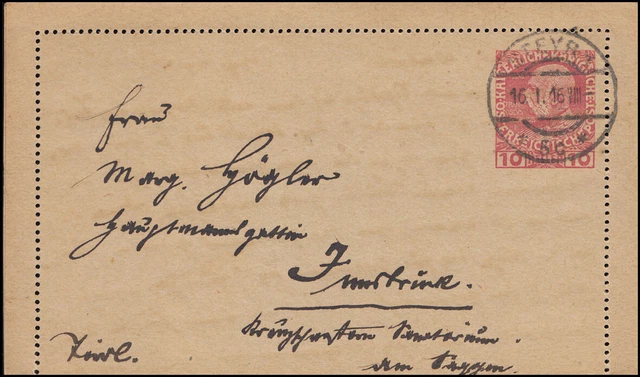 STEYR
KAISERLICHE KÖNIGLICHE
16. I. 16 VIII
ÖSTERREICHISCHE POST
* 5b *
10 10
Frau
Marg. Högler
Hauptmannsgattin
Innsbruck.
Kreuzschwestern Sanatorium.
am Saggen.
Tirol.